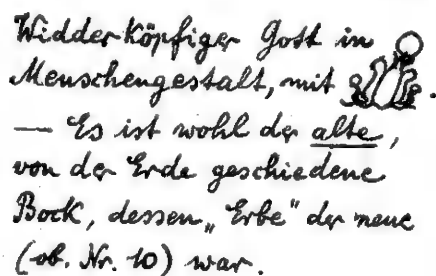 Widderköpfiger Gott in
Menschengestalt, mit .
— Es ist wohl der alte,
von der Erde geschiedene
Bock, dessen „Erbe" der neue
(ob. Nr. 10) war.